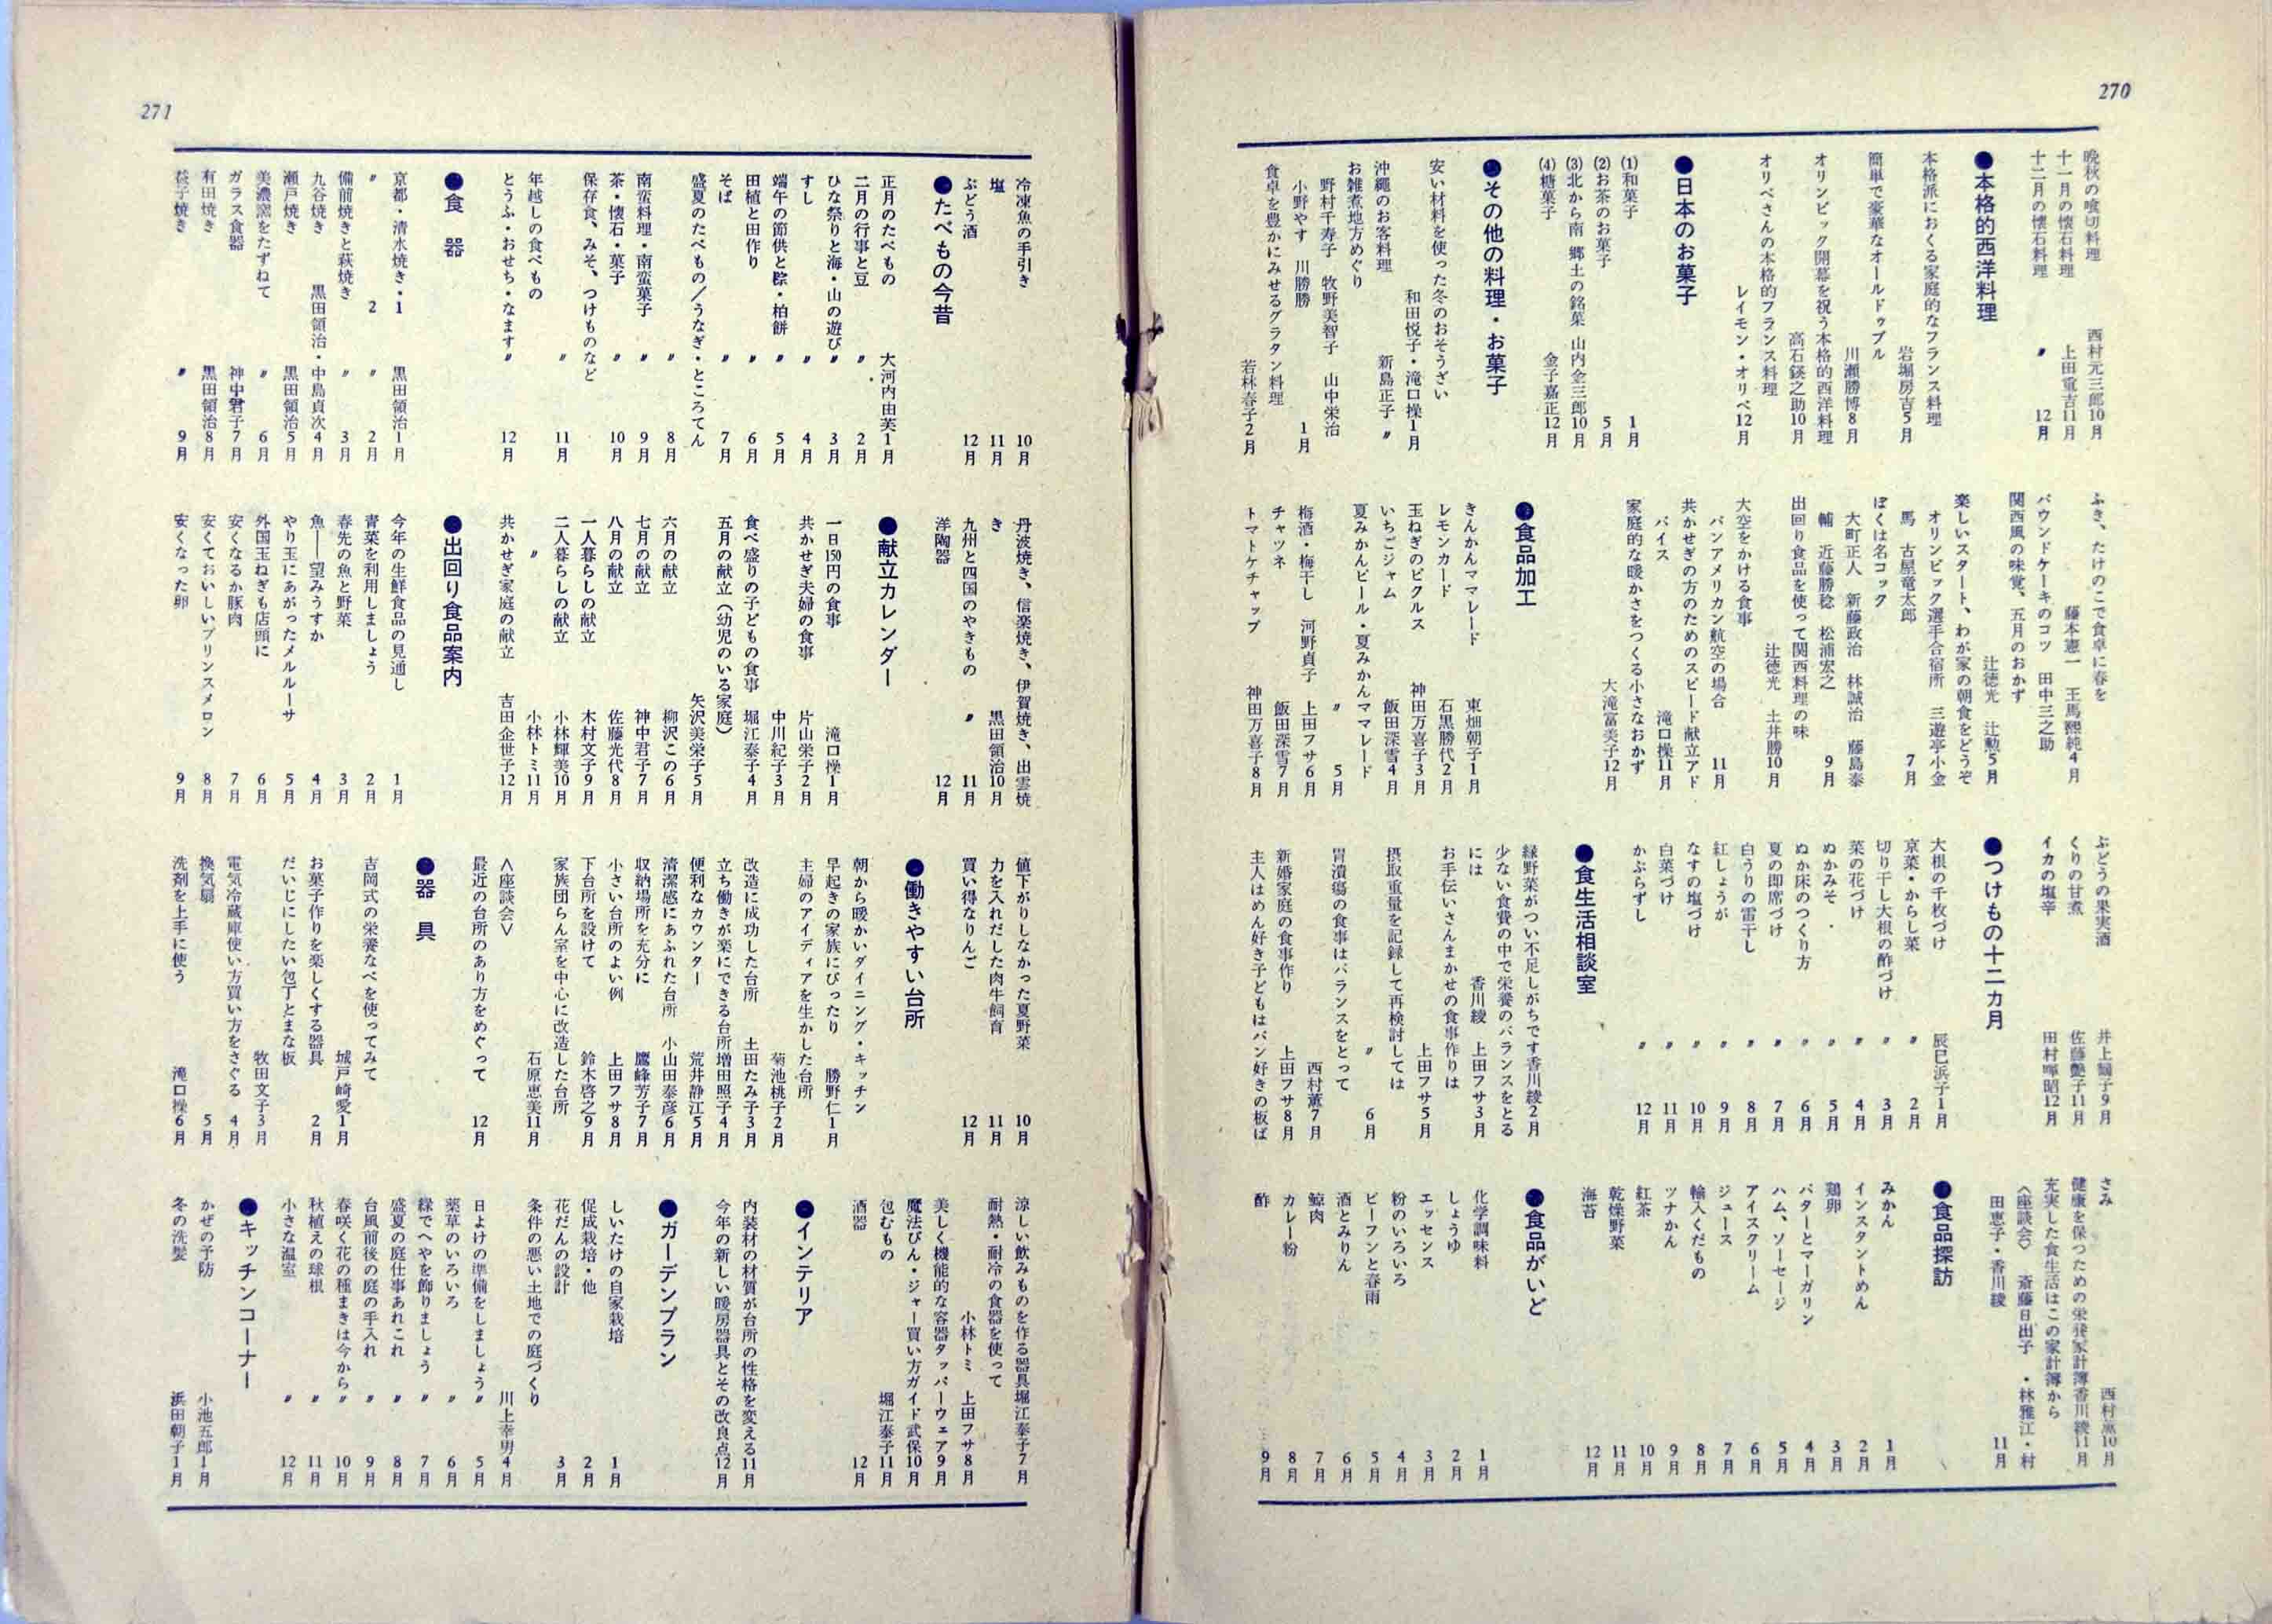 270
晩秋の喰切料理 西村元三郎10月
十一月の懐石料理 上田重吉11月
十二月の懐石料理 〃 12月
●本格的西洋料理
本格派におくる家庭的なフランス料理
岩堀房吉5月
簡単で豪華なオールドゥブル
川瀬勝博8月
オリンピック開幕を祝う本格的西洋料理
高石鍈之助10月
オリベさんの本格的フランス料理
レイモン・オリベ12月
●日本のお菓子
(1)和菓子 1月
(2)お茶のお菓子 5月
(3)北から南 郷土の銘菓 山内金三郎10月
(4)糖菓子 金子嘉正12月
●その他の料理・お菓子
安い材料を使った冬のおそうざい
和田悦子・滝口操1月
沖縄のお客料理 新島正子 〃
お雑煮地方めぐり
野村千寿子 牧野美智子 山中栄治
小野やす 川勝勝 1月
食卓を豊かにみせるグラタン料理
若林春子2月
ふき、たけのこで食卓に春を
藤本憲一 王馬熙純4月
パウンドケーキのコツ 田中三之助
関西風の味覚、五月のおかず
辻徳光 辻勲5月
楽しいスタート、わが家の朝食をどうぞ
オリンピック選手合宿所 三遊亭小金
馬 古屋竜太郎 7月
ぼくは名コック
大町正人 新藤政治 林誠治 藤島泰
輔 近藤勝稔 松浦宏之 9月
出回り食品を使って関西料理の味
辻徳光 土井勝10月
大空をかける食事
パンアメリカン航空の場合 11月
共かせぎの方のためのスピード献立アド
バイス 滝口操11月
家庭的な暖かさをつくる小さなおかず
大滝富美子12月
●食品加工
きんかんママレード 東畑朝子1月
レモンカード 石黒勝代2月
玉ねぎのピクルス 神田万喜子3月
いちごジャム 飯田深雪4月
夏みかんピール・夏みかんママレード
〃 5月
梅酒・梅干し 河野貞子 上田フサ6月
チャツネ 飯田深雪7月
トマトケチャップ 神田万喜子8月
ぶどうの果実酒 井上鶴子9月
くりの甘煮 佐藤艶子11月
イカの塩辛 田村暉昭12月
●つけもの十二カ月
大根の千枚づけ 辰巳浜子1月
京菜・からし菜 〃 2月
切り干し大根の酢づけ 〃 3月
菜の花づけ 〃 4月
ぬかみそ 〃 5月
ぬか床のつくり方 〃 6月
夏の即席づけ 〃 7月
白うりの雷干し 〃 8月
紅しょうが 〃 9月
なすの塩づけ 〃 10月
白菜づけ 〃 11月
かぶらずし 〃 12月
●食生活相談室
緑野菜がつい不足しがちです香川綾2月
少ない食費の中で栄養のバランスをとる
には 香川綾 上田フサ3月
お手伝いさんまかせの食事作りは
上田フサ5月
摂取重量を記録して再検討しては
〃 6月
胃潰瘍の食事はバランスをとって
西村薫7月
新婚家庭の食事作り 上田フサ8月
主人はめん好き子どもはパン好きの板ば
さみ 西村薫10月
健康を保つための栄養家計簿香川綾11月
充実した食生活はこの家計簿から
〈座談会〉 斎藤日出子・林雅江・村
田恵子・香川綾 11月
●食品探訪
みかん 1月
インスタントめん 2月
鶏卵 3月
バターとマーガリン 4月
ハム、ソーセージ 5月
アイスクリーム 6月
ジュース 7月
輸入くだもの 8月
ツナかん 9月
紅茶 10月
乾燥野菜 11月
海苔 12月
●食品がいど
化学調味料 1月
しょうゆ 2月
エッセンス 3月
粉のいろいろ 4月
ビーフンと春雨 5月
酒とみりん 6月
鯨肉 7月
カレー粉 8月
酢 9月
271
冷凍魚の手引き 10月
塩 11月
ぶどう酒 12月
●たべもの今昔
正月のたべもの 大河内由芙1月
二月の行事と豆 〃 2月
ひな祭りと海・山の遊び 〃 3月
すし 〃 4月
端午の節供と粽・柏餅 〃 5月
田植と田作り 〃 6月
そば 〃 7月
盛夏のたべもの／うなぎ・ところてん
〃 8月
南蛮料理・南蛮菓子 〃 9月
茶・懐石・菓子 〃 10月
保存食、みそ、つけものなど
〃 11月
年越しの食べもの
とうふ・おせち・なます 〃 12月
●食器
京都・清水焼き・1 黒田領治1月
〃 2 〃 2月
備前焼きと萩焼き 〃 3月
九谷焼き 黒田領治・中島貞次4月
瀬戸焼き 黒田領治5月
美濃窯をたずねて 〃 6月
ガラス食器 神中君子7月
有田焼き 黒田領治8月
益子焼き 〃 9月
丹波焼き、信楽焼き、伊賀焼き、出雲焼
き 黒田領治10月
九州と四国のやきもの 〃 11月
洋陶器 12月
●献立カレンダー
一日150円の食事 滝口操1月
共かせぎ夫婦の食事 片山栄子2月
中川紀子3月
食べ盛りの子どもの食事 堀江泰子4月
五月の献立（幼児のいる家庭）
矢沢美栄子5月
六月の献立 柳沢この6月
七月の献立 神中君子7月
八月の献立 佐藤光代8月
一人暮らしの献立 木村文子9月
二人暮らしの献立 小林輝美10月
〃 小林トミ11月
共かせぎ家庭の献立 吉田企世子12月
●出回り食品案内
今年の生鮮食品の見通し 1月
青菜を利用しましょう 2月
春先の魚と野菜 3月
魚――望みうすか 4月
やり玉にあがったメルルーサ 5月
外国玉ねぎも店頭に 6月
安くなるか豚肉 7月
安くておいしいプリンスメロン 8月
安くなった卵 9月
値下がりしなかった夏野菜 10月
力を入れだした肉牛飼育 11月
買い得なりんご 12月
●働きやすい台所
朝から暖かいダイニング・キッチン
早起きの家族にぴったり 勝野仁1月
主婦のアイディアを生かした台所
菊池桃子2月
改造に成功した台所 土田たみ子3月
立ち働きが楽にできる台所増田照子4月
便利なカウンター 荒井静江5月
清潔感にあふれた台所 小山田泰彦6月
収納場所を充分に 鷹峰芳子7月
小さい台所のよい例 上田フサ8月
下台所を設けて 鈴木啓之9月
家族団らん室を中心に改造した台所
石原恵美11月
〈座談会〉
最近の台所のあり方をめぐって 12月
●器具
吉岡式の栄養なべを使ってみて
城戸崎愛1月
お菓子作りを楽しくする器具 2月
だいじにしたい包丁とまな板
牧田文子3月
電気冷蔵庫使い方買い方をさぐる 4月
換気扇 5月
洗剤を上手に使う 滝口操6月
涼しい飲みものを作る器具堀江泰子7月
耐熱・耐冷の食器を使って
小林トミ 上田フサ8月
美しく機能的な容器タッパーウェア9月
魔法びん・ジャー買い方ガイド武保10月
包むもの 堀江泰子11月
酒器 12月
●インテリア
内装材の材質が台所の性格を変える11月
今年の新しい暖房器具とその改良点12月
●ガーデンプラン
しいたけの自家栽培 1月
促成栽培・他 2月
花だんの設計 3月
条件の悪い土地での庭づくり
川上幸男4月
日よけの準備をしましょう 〃 5月
薬草のいろいろ 〃 6月
緑でへやを飾りましょう 〃 7月
盛夏の庭仕事あれこれ 〃 8月
台風前後の庭の手入れ 〃 9月
春咲く花の種まきは今から 〃 10月
秋植えの球根 〃 11月
小さな温室 〃 12月
●キッチンコーナー
かぜの予防 小池五郎1月
冬の洗髪 浜田朝子1月